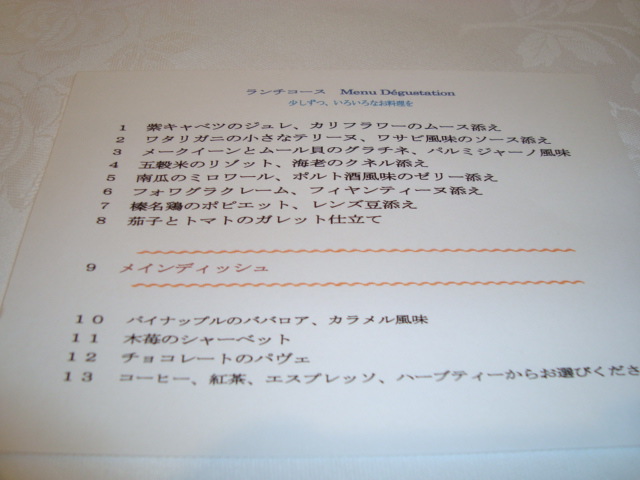 ランチコース Menu Dégustation
少しずつ、いろいろなお料理を
1 紫キャベツのジュレ、カリフラワーのムース添え
2 ワタリガニの小さなテリーヌ、ワサビ風味のソース添え
3 メークイーンとムール貝のグラチネ、パルミジャーノ風味
4 五穀米のリゾット、海老のクネル添え
5 南瓜のミロワール、ポルト酒風味のゼリー添え
6 フォワグラクレーム、フィヤンティーヌ添え
7 榛名鶏のポピエット、レンズ豆添え
8 茄子とトマトのガレット仕立て
9 メインディッシュ
10 パイナップルのババロア、カラメル風味
11 木苺のシャーベット
12 チョコレートのパヴェ
13 コーヒー、紅茶、エスプレッソ、ハーブティーからお選びくださ